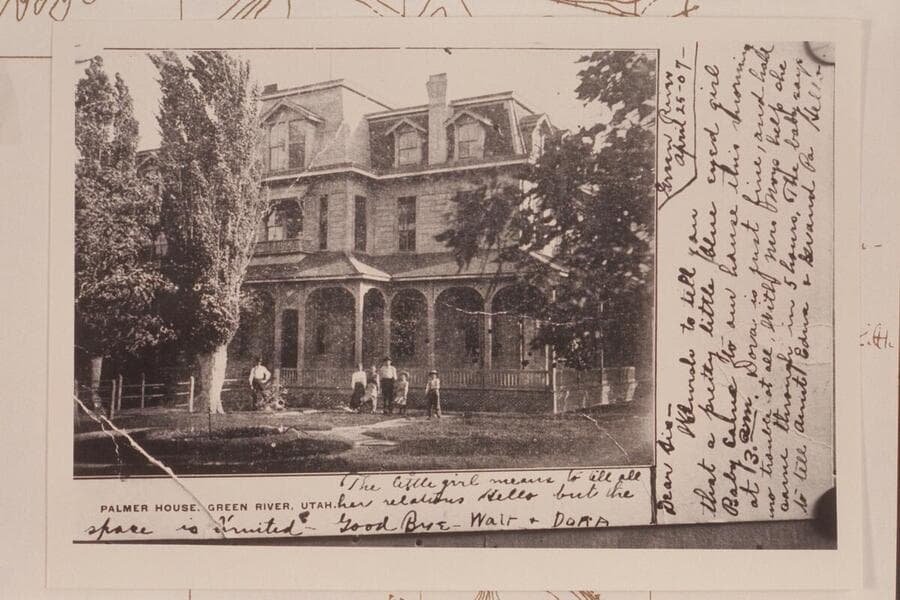 Green River
april 25-07-
Dear Sis-
to tell you
that a pretty little blue eyed girl
Baby came to our house this morning
at 3am. Dora is just fine, and had
no trouble at all. With Mrs help she
came through in 5 hours. The baby says
to tell Aunt Edna & Grand Pa Hello
PALMER HOUSE, GREEN RIVER, UTAH.
The little girl means to tell all
her relations Hello but the
space is "limited"- Good Bye- Walt & DORA